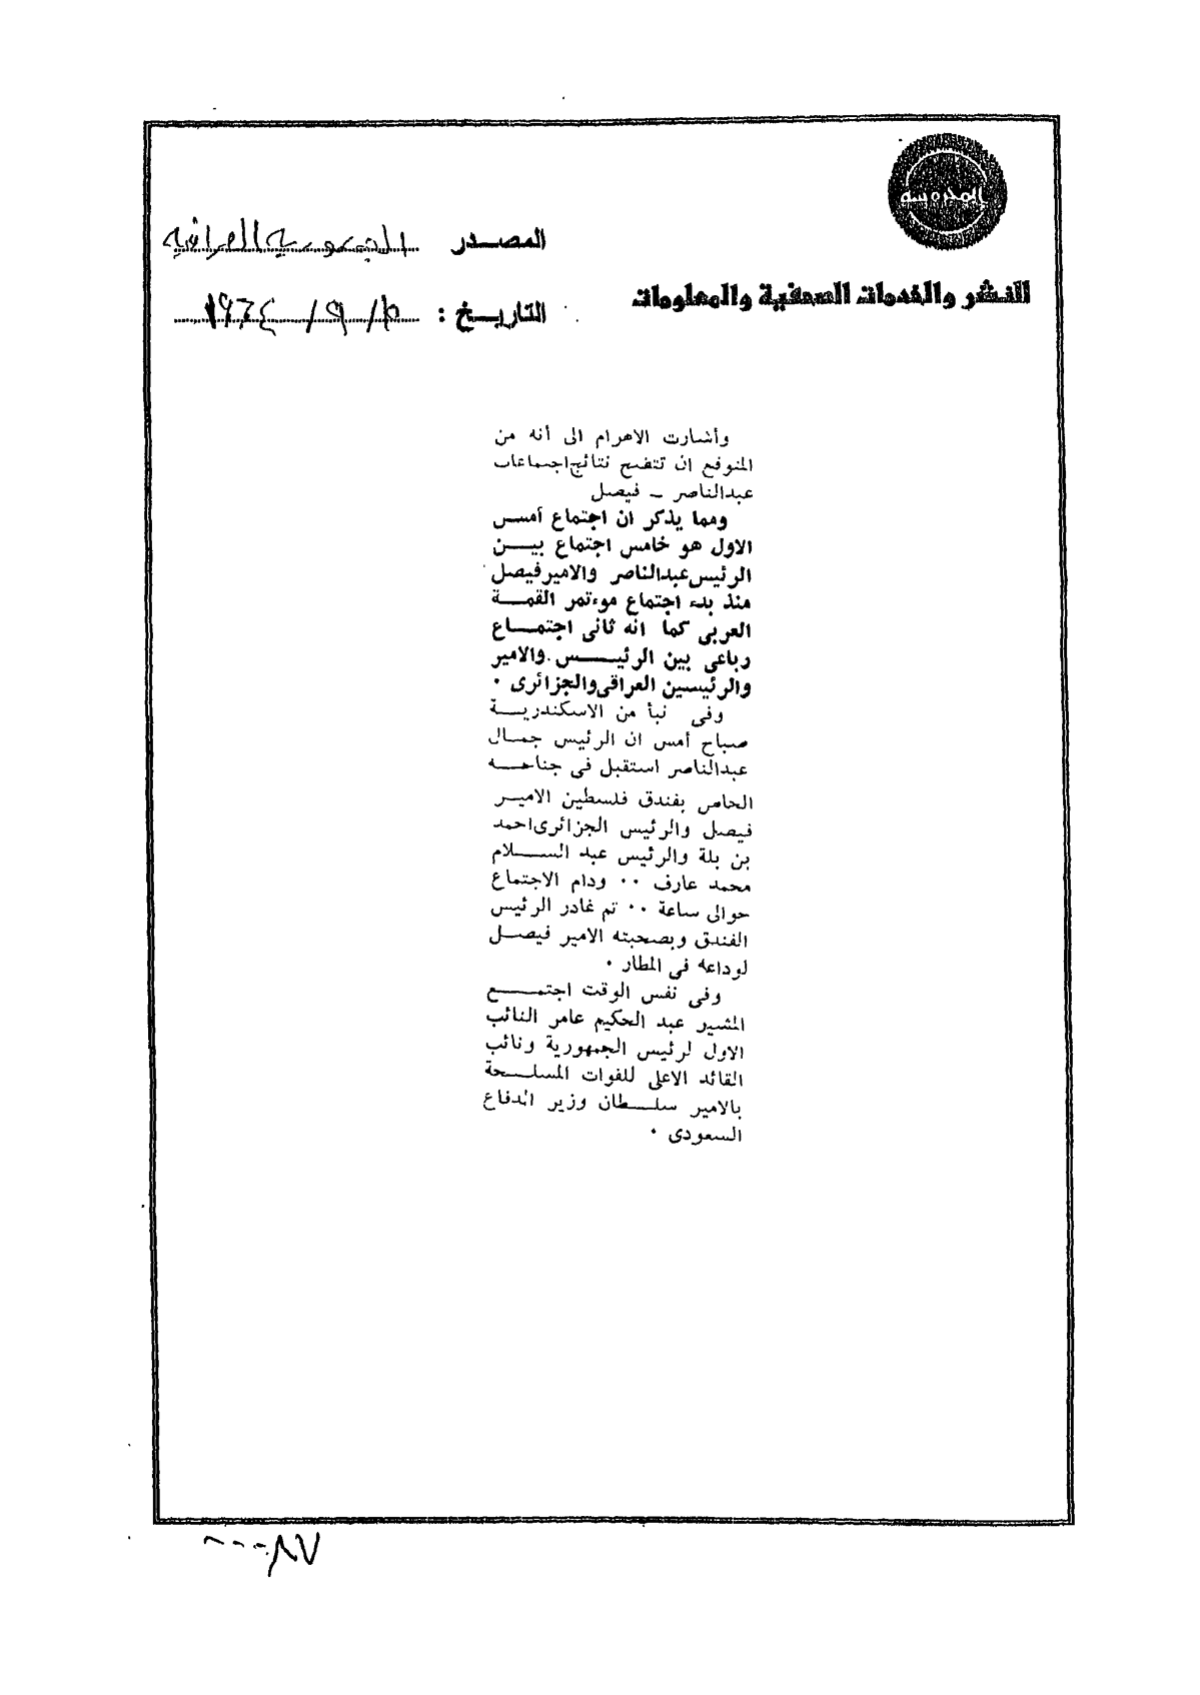 المحروسة
للنشر والخدمات الصحفية والمعلومات
المصـدر الجمهورية العراقية
التاريـخ : / ٩ / ١٩٦٤
وأشارت الاهرام الى أنه من
المتوقع ان تتضح نتائج اجتماعات
عبدالناصر ــ فيصل
ومما يذكر ان اجتماع أمس
الاول هو خامس اجتماع بيــن
الرئيس عبدالناصر والامير فيصل
منذ بدء اجتماع موءتمر القمــة
العربى كما انه ثانى اجتمــاع
رباعى بين الرئيــس والامير
والرئيسين العراقى والجزائرى ٠
وفى نبأ من الاسكندريــة
صباح أمس ان الرئيس جمـال
عبدالناصر استقبل فى جناحــه
الخاص بفندق فلسطين الاميـر
فيصل والرئيس الجزائرى احمد
بن بلة والرئيس عبد الســلام
محمد عارف ٠٠ ودام الاجتماع
حوالى ساعة ٠٠ ثم غادر الرئيس
الفندق وبصحبته الامير فيصـل
لوداعه فى المطار ٠
وفى نفس الوقت اجتمــع
المشير عبد الحكيم عامر النائب
الاول لرئيس الجمهورية ونائب
القائد الاعلى للقوات المسلـحة
بالامير سلــطان وزير الدفاع
السعودى ٠